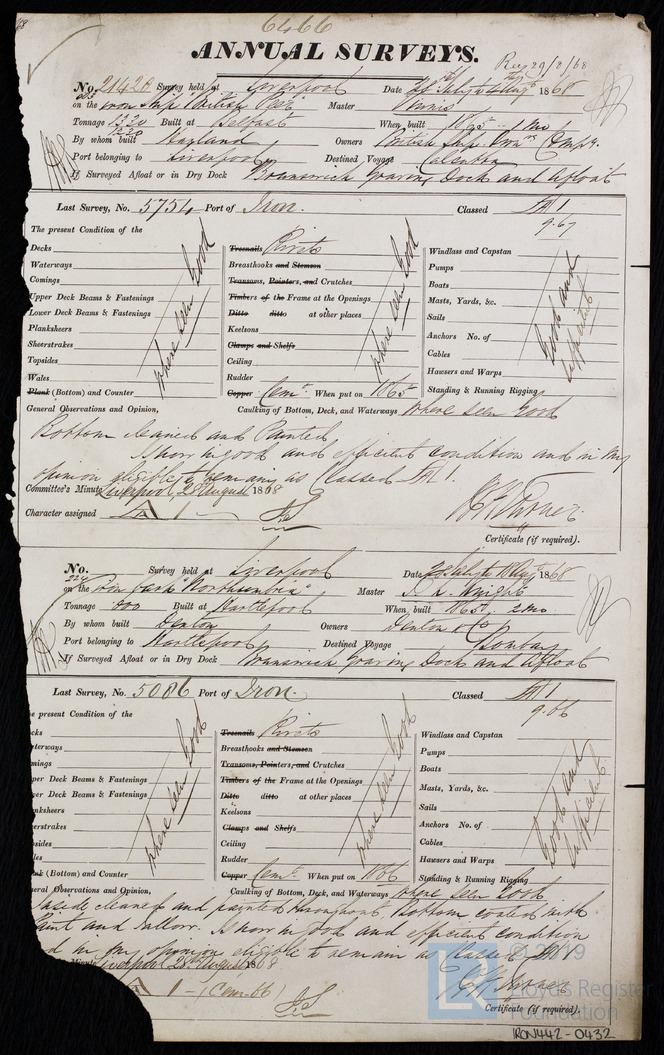 6466
ANNUAL SURVEYS.
Rec 29/8/68
No. 21428 Survey held at Liverpool Date 1868
on the iron Ship "British Peer" Master
Tonnage 1320 Built at Belfast When built 1865 - 1 Mo
1220
By whom built Harland Owners British Ship Owns Compy.
Port belonging to Liverpool Destined Voyage Calcutta
If Surveyed Afloat or in Dry Dock Brunswick Graving Dock and Afloat
Last Survey, No. 5754 Port of Iron. Classed A 1
9.67
The present Condition of the
Decks
Waterways
Comings
Upper Deck Beams & Fastenings
Lower Deck Beams & Fastenings
Planksheers
Sheerstrakes
Topsides
Wales
Plank (Bottom) and Counter
where seen Good
Treenails Rivets
Breasthooks and Stemson
Transoms, Pointers, and Crutches
Timbers of the Frame at the Openings
Ditto ditto at other places
Keelsons
Clamps and Shelfs
Ceiling
Rudder
Copper Cemt. When put on 1865
where seen Good
Windlass and Capstan
Pumps
Boats
Masts, Yards, &c.
Sails
Anchors No. of
Cables
Hawsers and Warps
Standing & Running Rigging
Good and sufficient
General Observations and Opinion, Caulking of Bottom, Deck, and Waterways where seen Good
Bottom cleaned and Painted
Is now in good and efficient condition and in my
opinion eligible to remain as Classed A 1.
Committee's Minute Liverpool, 28 August 1868
Character assigned A 1
Certificate (if required).
No. Survey held at Liverpool Date 1868
on the Iron bark "Northumbria" Master Knight
Tonnage 800 Built at Hartlepool When built 1865. 2 mo.
By whom built Denton Owners Denton & Co
Port belonging to Hartlepool Destined Voyage Bombay
If Surveyed Afloat or in Dry Dock Brunswick Graving Dock and Afloat
Last Survey, No. 5086 Port of Iron. Classed A 1
9.66
e present Condition of the
cks
terways
mings
per Deck Beams & Fastenings
er Deck Beams & Fastenings
nksheers
eerstrakes
psides
les
nk (Bottom) and Counter
where seen Good
Treenails Rivets
Breasthooks and Stemson
Transoms, Pointers, and Crutches
Timbers of the Frame at the Openings
Ditto ditto at other places
Keelsons
Clamps and Shelfs
Ceiling
Rudder
Copper Cemt. When put on 1866
where seen Good
Windlass and Capstan
Pumps
Boats
Masts, Yards, &c.
Sails
Anchors No. of
Cables
Hawsers and Warps
Standing & Running Rigging
Good and sufficient
neral Observations and Opinion, Caulking of Bottom, Deck, and Waterways where seen Good
nside cleaned and painted throughout, Bottom coated with
aint and Tallow. Is now in good and efficient condition
d in my opinion eligible to remain as Classed A 1
Liverpool 28 August 1868
A 1 - (Cem. 66)
Certificate (if required).
© 2019
Lloyd's Register
Foundation
IRON442-0432